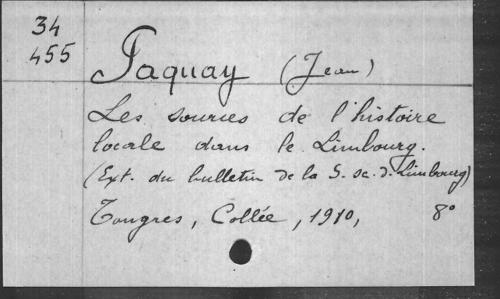 34
455
Paquay (Jean)
Les sources de l'histoire
locale dans le Limbourg.
(Ext. du bulletin de la S. sc. d. Limbourg)
Tongres, Collée, 1910, 8°